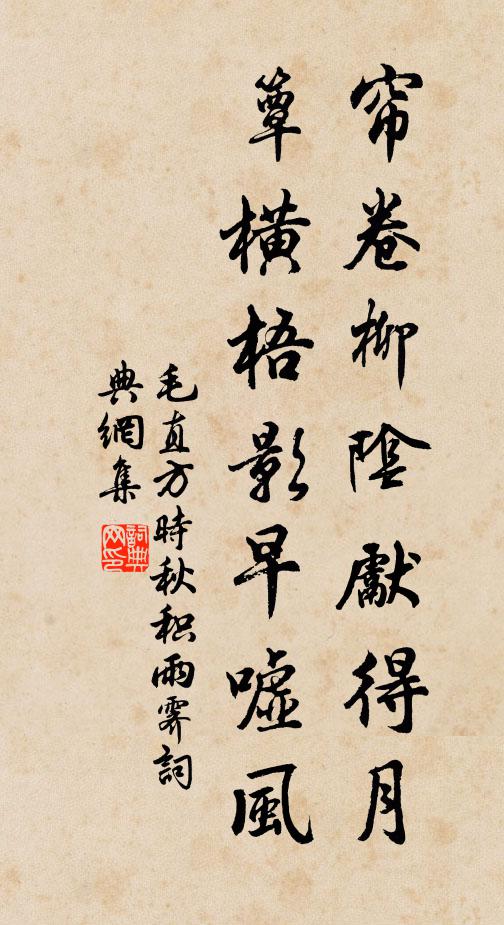 帘卷柳陰獻得月
簟橫梧影早噓風
毛直方時秋积雨霽詞
典網集
詞典
网印